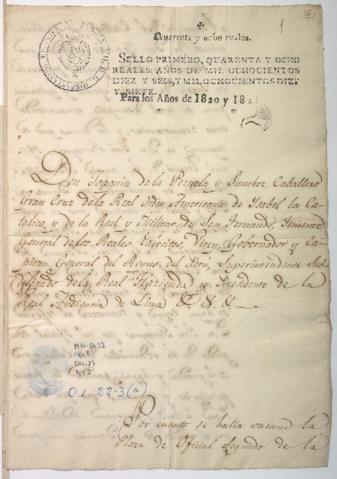 Quarenta y ocho reales.
SELLO PRIMERO, QUARENTA Y OCHO
REALES: AÑOS DE MIL OCHOCIENTOS
DIEZ Y SEIS, Y MIL OCHOCIENTOS DIEZ
Y SIETE.
Para los Años de 1820 y 182
Don Joaquin de la Pezuela y Sanchez, Caballero
Gran Cruz de la Real Orden Americana de Isabel la Ca
tolica, y de la Real y Militar de San Fernando, Teniente
General de los Reales Exercitos, Virrey, Gobernador y Ca
pitan General del Reyno del Peru, Superintendente Sub
delegado de la Real Hacienda y Presidente de la
Real Audiencia de Lima &. &. &.
O.L. 22-3(a)
Por cuanto se halla vacante la
Plaza de Oficial Segundo de la